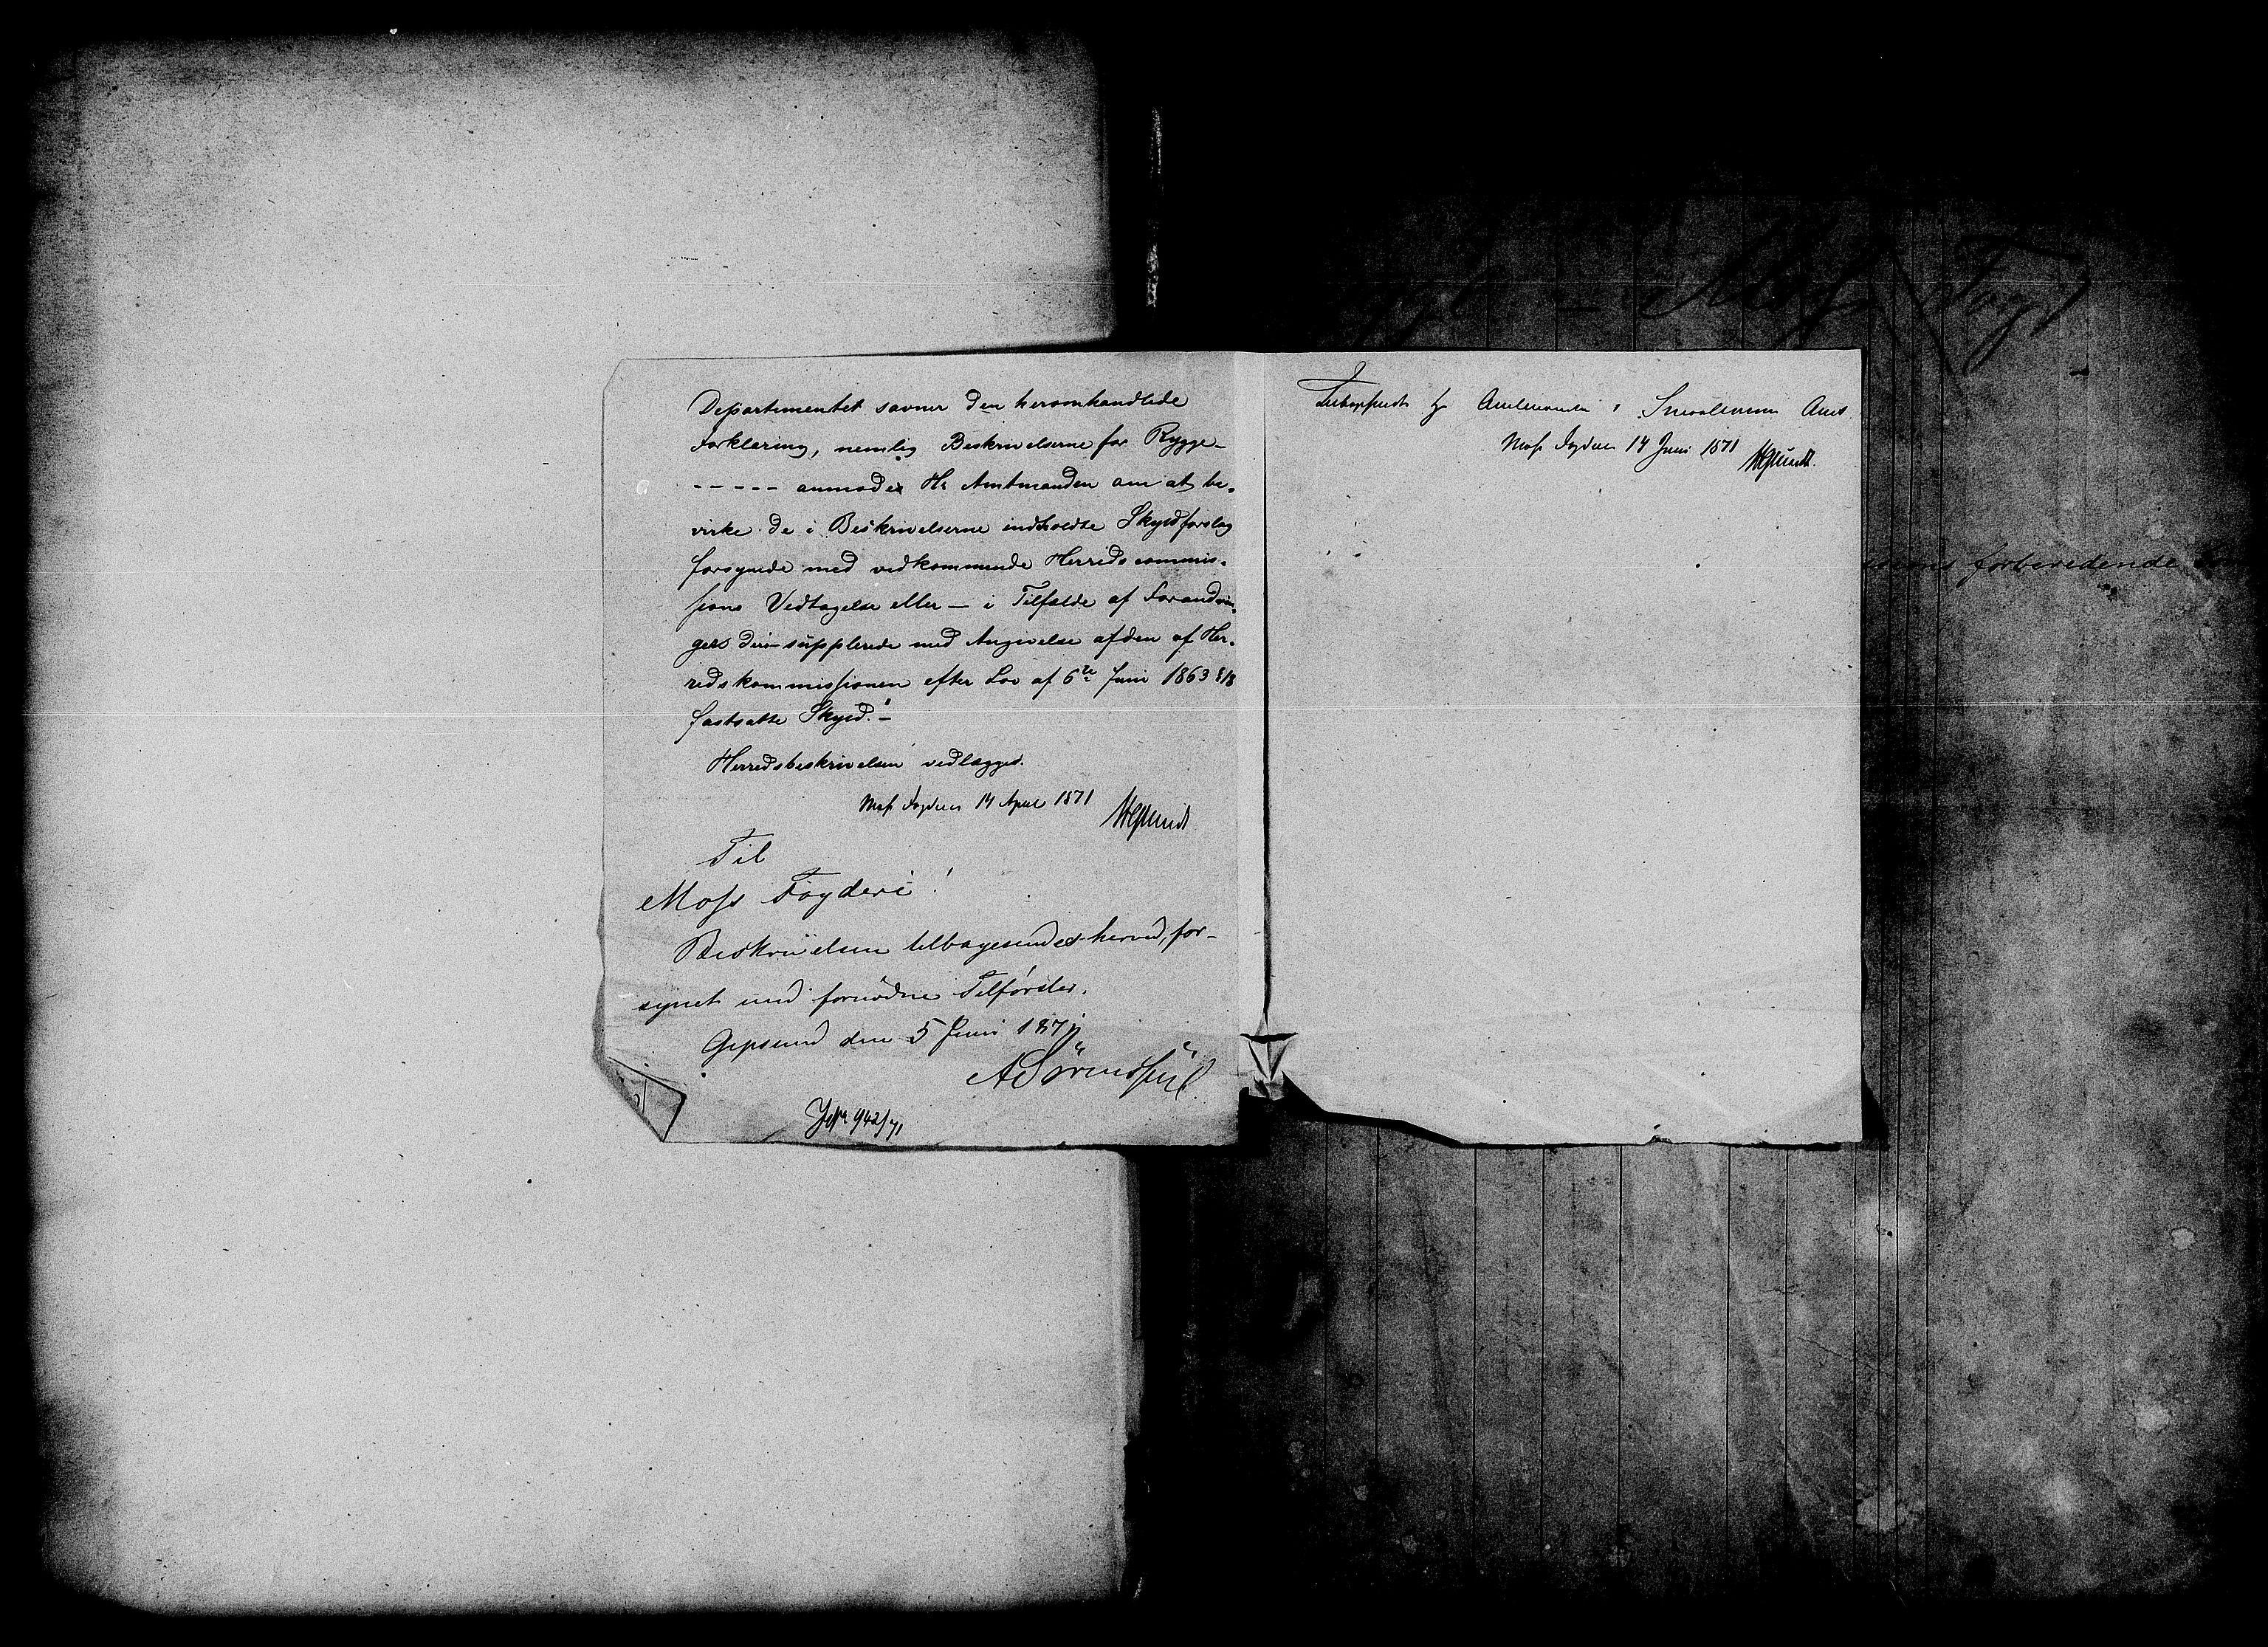 Departementet savner den heromhandlede
Forklaring, nemlig Beskrivelserne for Rygge-
----- anmodes Hr Amtmanden om at be-
virke de i Beskrivelserne indholdte Skyldforslag
forsynede med vedkommende Herredscommis-
sions Vedtagelse eller — i Tilfælde af Forandrin-
gers deri — supplerede med Angivelse af den af Her-
redskommissionen efter Lov af 6te Juni 1863 § 18
fastsatte Skyld." —
Herredsbeskrivelsen vedlægges.
Moss Fogderi 14 April 1871
Til
Moss Fogderi!
Beskrivelsen tilbagesendes herved, for-
synet med fornødne Tilførsler.
den 5 Juni 1871
A Sørens
JNr 942/71
Amtmanden i Smaalenenes Amt
Moss Fogderi 14 Juni 1871
Moss Fogd
forberedende